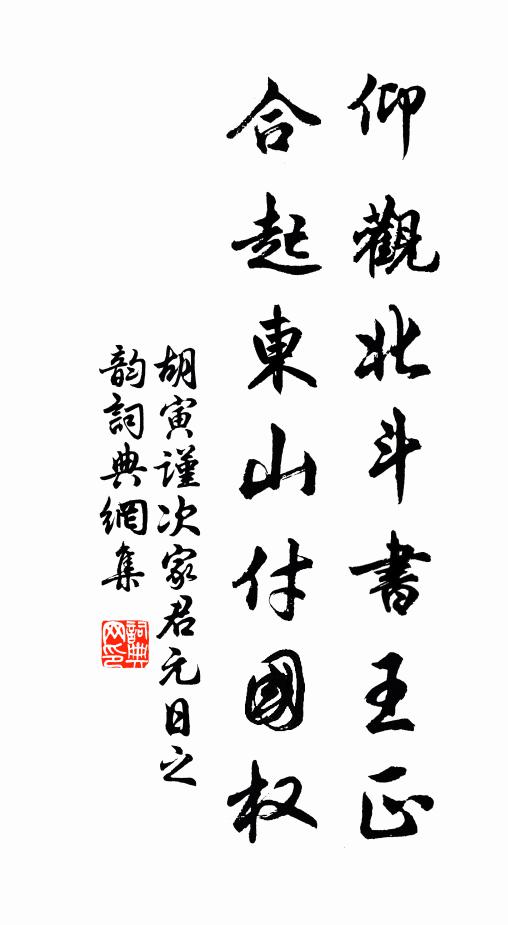 仰觀北斗書王正
合起東山付國权
胡寅謹次家君元日之
韵詞典網集
詞典
网印